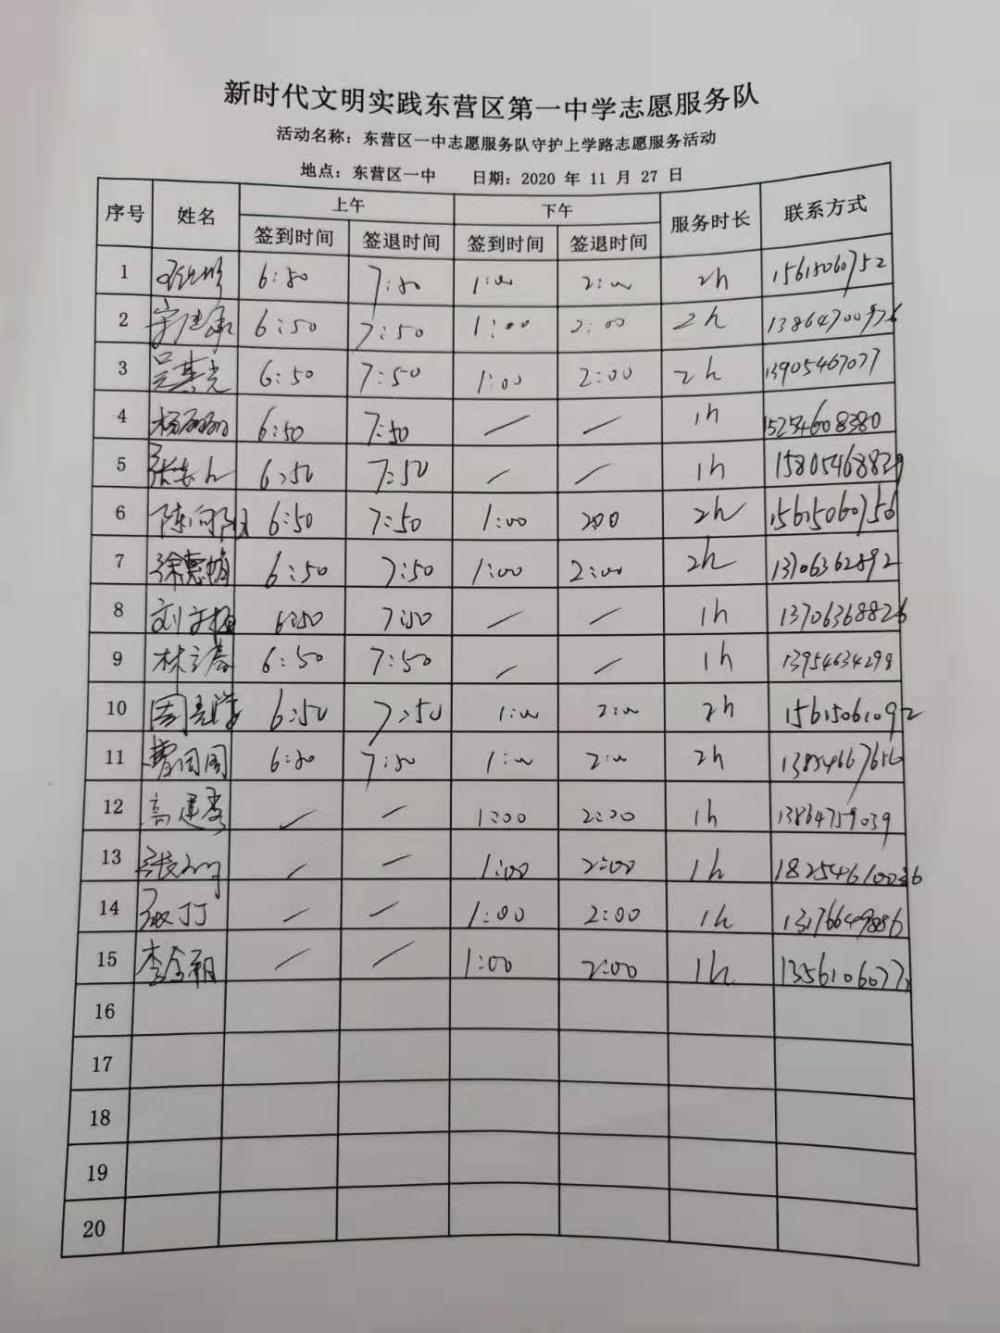 新时代文明实践东营区第一中学志愿服务队
活动名称：东营区一中志愿服务队守护上学路志愿服务活动
地点：东营区一中 日期：2020 年 11 月 27 日
序号 姓名 上午 下午 服务时长 联系方式
签到时间 签退时间 签到时间 签退时间
1 6:50 7:50 1:00 2:00 2h 15615060752
2 6:50 7:50 1:00 2:00 2h
3 吴其光 6:50 7:50 1:00 2:00 2h 13905467077
4 杨丽丽 6:50 7:50 / / 1h 15254608380
5 6:50 7:50 / / 1h
6 6:50 7:50 1:00 2:00 2h 15615060756
7 徐惠娟 6:50 7:50 1:00 2:00 2h 13706362892
8 6:50 7:50 / / 1h 13706368826
9 6:50 7:50 / / 1h 13954634298
10 6:50 7:50 1:00 2:00 2h 15615061092
11 6:50 7:50 1:00 2:00 2h 13854667656
12 / / 1:00 2:00 1h 13864759039
13 / / 1:00 2:00 1h
14 / / 1:00 2:00 1h 13176649886
15 / / 1:00 2:00 1h
16
17
18
19
20